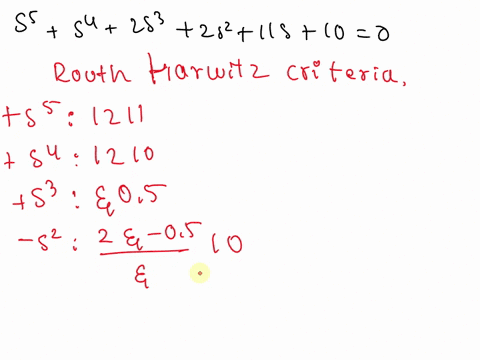 S⁵ + S⁴ + 2S³ + 2S² + 11S + 10 = 0
Routh Harwitz criteria,
+S⁵ : 1 2 11
+ S⁴ : 1 2 10
+S³ : ε 0.5
-S² : (2ε - 0.5)/ε 10